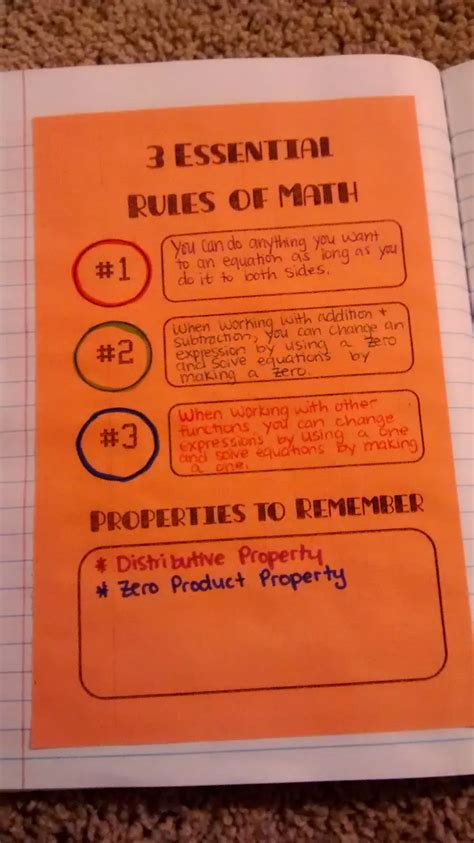 3 ESSENTIAL
RULES OF MATH
#1
You can do anything you want
to an equation as long as you
do it to both sides.
#2
When working with addition +
subtraction, you can change an
expression by using a zero
and solve equations by
making a zero.
#3
When working with other
functions you can change
expressions by using a one
and solve equations by making
a one.
PROPERTIES TO REMEMBER
* Distributive Property
* Zero Product Property